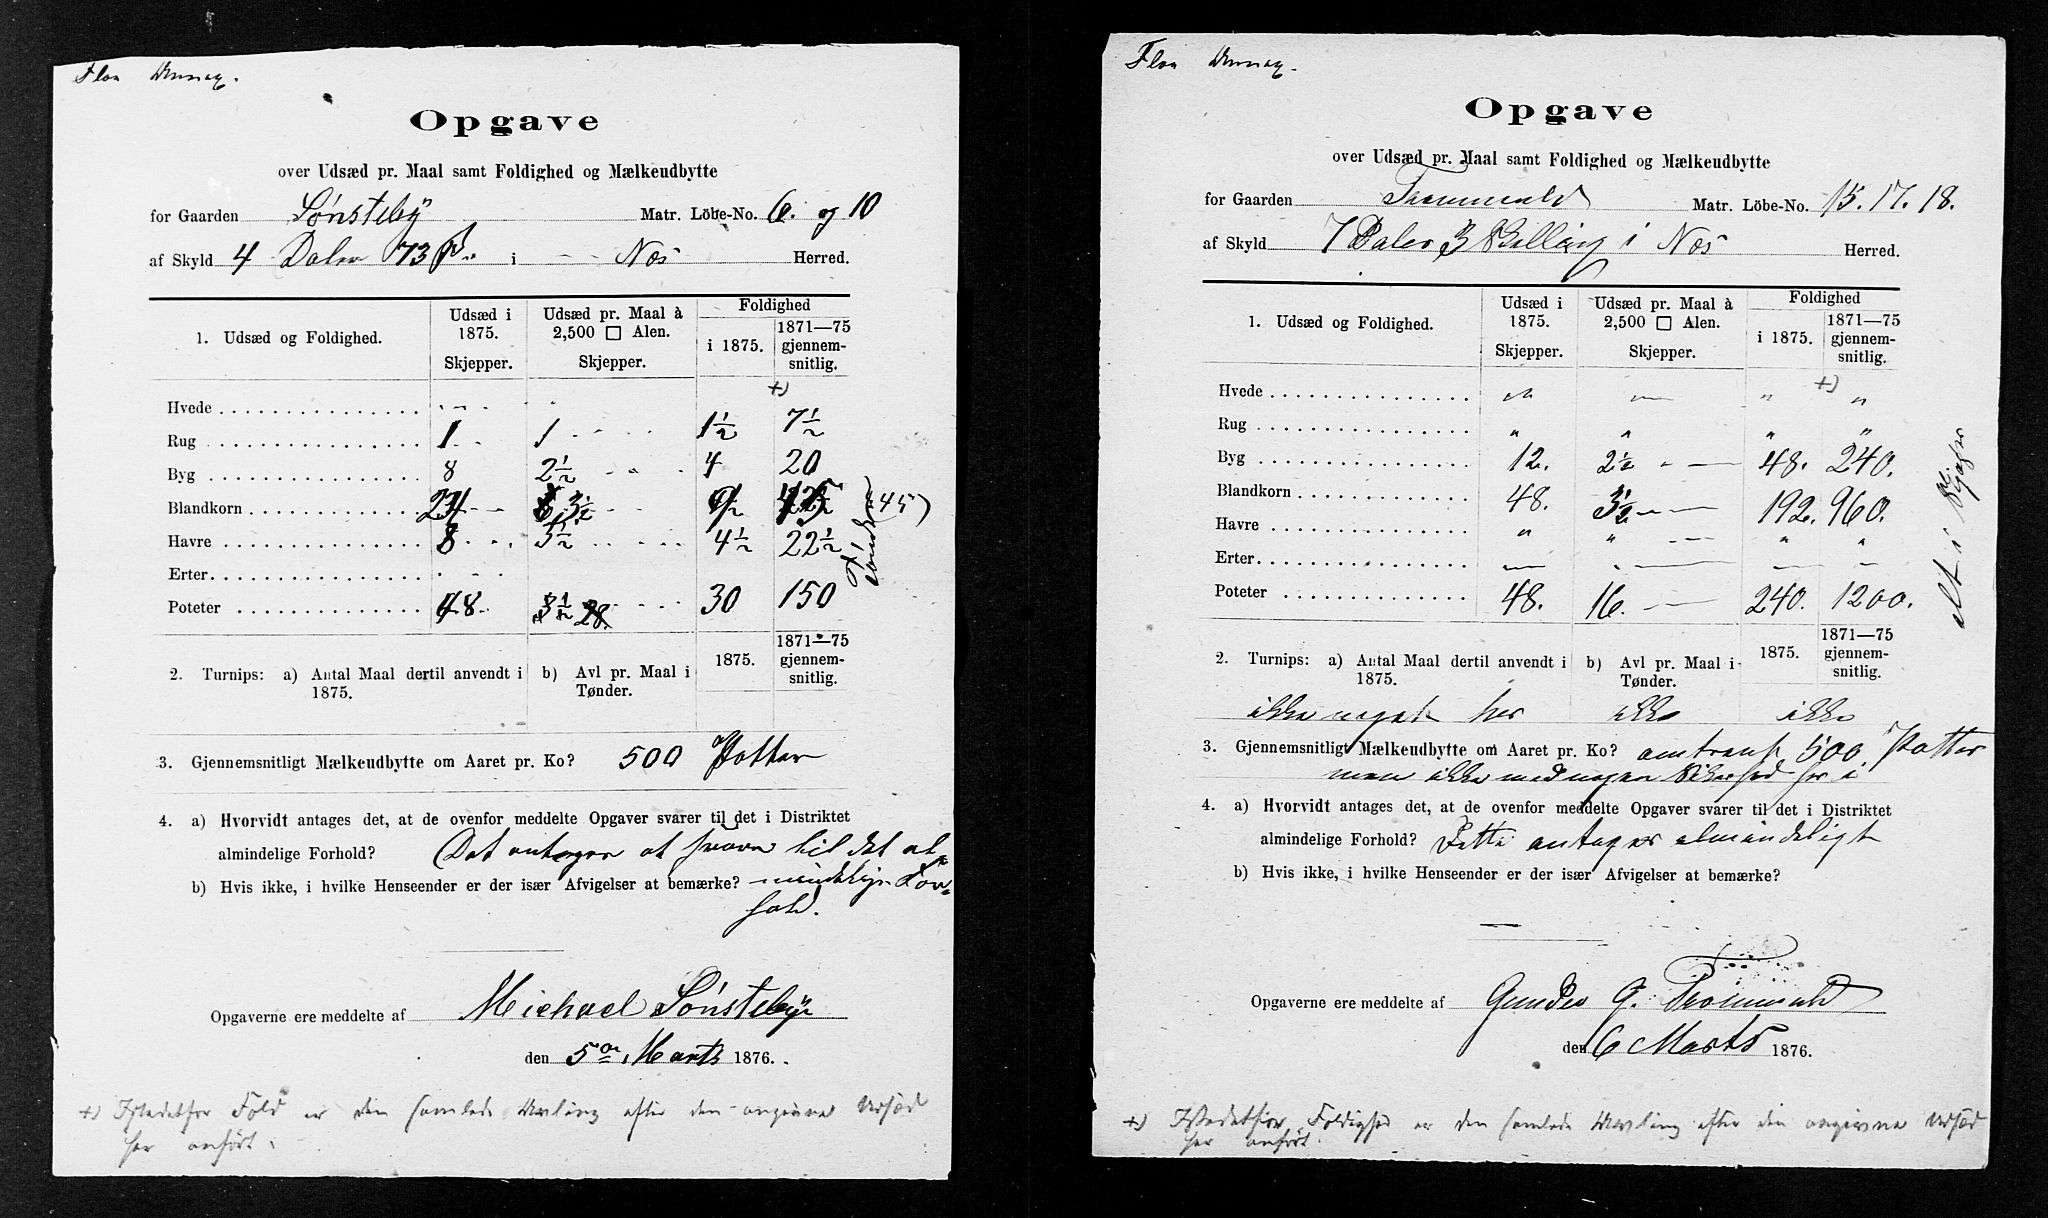 Opgave
over Udsæd pr. Maal samt Foldighed og Mælkeudbytte
for Gaarden Sønsteby Matr. Löbe-No. 6. og 10
af Skyld 4 Daler 73 i Næs Herred.
1. Udsæd og Foldighed. Udsæd i 1875. Skjepper. Udsæd pr. Maal à 2,500 □ Alen. Skjepper. Foldighed i 1875. 1871—75 gjennem-snitlig.
+)
Hvede
Rug 1 1 1½ 7½
Byg 8 2½ 4 20
Blandkorn 24 3½ (45)
Havre 8 5½ 4½ 22½
Erter
Poteter 48 28. 30 150
Tönder
2. Turnips: a) Antal Maal dertil anvendt i 1875. b) Avl pr. Maal i Tønder. 1875. 1871—75 gjennem-snitlig.
3. Gjennemsnitligt Mælkeudbytte om Aaret pr. Ko? 500 Potter
4. a) Hvorvidt antages det, at de ovenfor meddelte Opgaver svarer til det i Distriktet
almindelige Forhold? Det antages at svare til det al-
b) Hvis ikke, i hvilke Henseender er der især Afvigelser at bemærke? mindelige For-
hold.
Opgaverne ere meddelte af Michael Sønsteby
den 5te Marts 1876.
+) Istedetfor Fold er den samlede Avling efter den angivne Udsæd
her anført.
Opgave
over Udsæd pr. Maal samt Foldighed og Mælkeudbytte
for Gaarden Tromwald Matr. Löbe-No. 15. 17. 18.
af Skyld 7 Daler 3 Skilling i Næs Herred.
1. Udsæd og Foldighed. Udsæd i 1875. Skjepper. Udsæd pr. Maal à 2,500 □ Alen. Skjepper. Foldighed i 1875. 1871—75 gjennem-snitlig.
+)
Hvede " — " "
Rug " " " "
Byg 12. 2½ " — 48. 240.
Blandkorn 48. 3½ — 192. 960.
Havre " " — " "
Erter — — " —
Poteter 48. 16. — 240. 1200.
alt i Skjepper
2. Turnips: a) Antal Maal dertil anvendt i 1875. b) Avl pr. Maal i Tønder. 1875. 1871—75 gjennem-snitlig.
ikke noget her ikke ikke
3. Gjennemsnitligt Mælkeudbytte om Aaret pr. Ko? omtrent 500. Potter
men ikke med nogen Sikerhed for i
4. a) Hvorvidt antages det, at de ovenfor meddelte Opgaver svarer til det i Distriktet
almindelige Forhold? Dette antages almindeligt
b) Hvis ikke, i hvilke Henseender er der især Afvigelser at bemærke?
Opgaverne ere meddelte af Gunder G. Tromwald
den 6 Marts 1876.
+) Istedetfor Foldighed er den samlede Avling efter den angivne Udsæd
her anført.